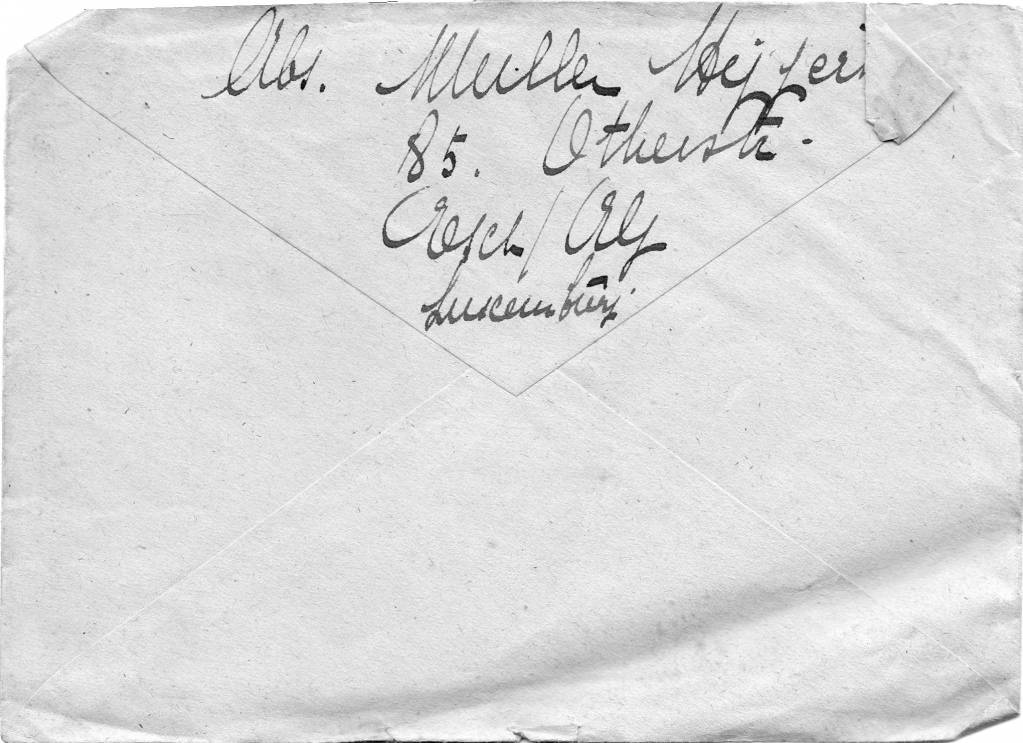 Abs. Muller
85. Otherstr.
Esch/Alz
Luxemburg.